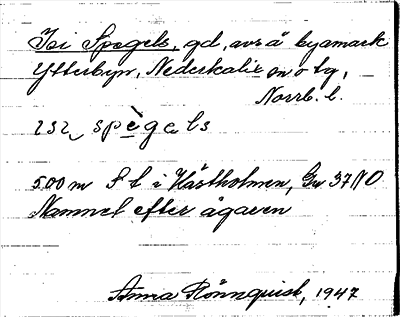 Isi Spegels, gd, avs å byamark
Ytterbyn, Nederkalix sn o tg,
Norrb. l.
ɪsɪ spègəls
500 m S l i Hästholmen, Gu 37 NO
Namnet efter ägaren
Anna Rönnquist, 1947